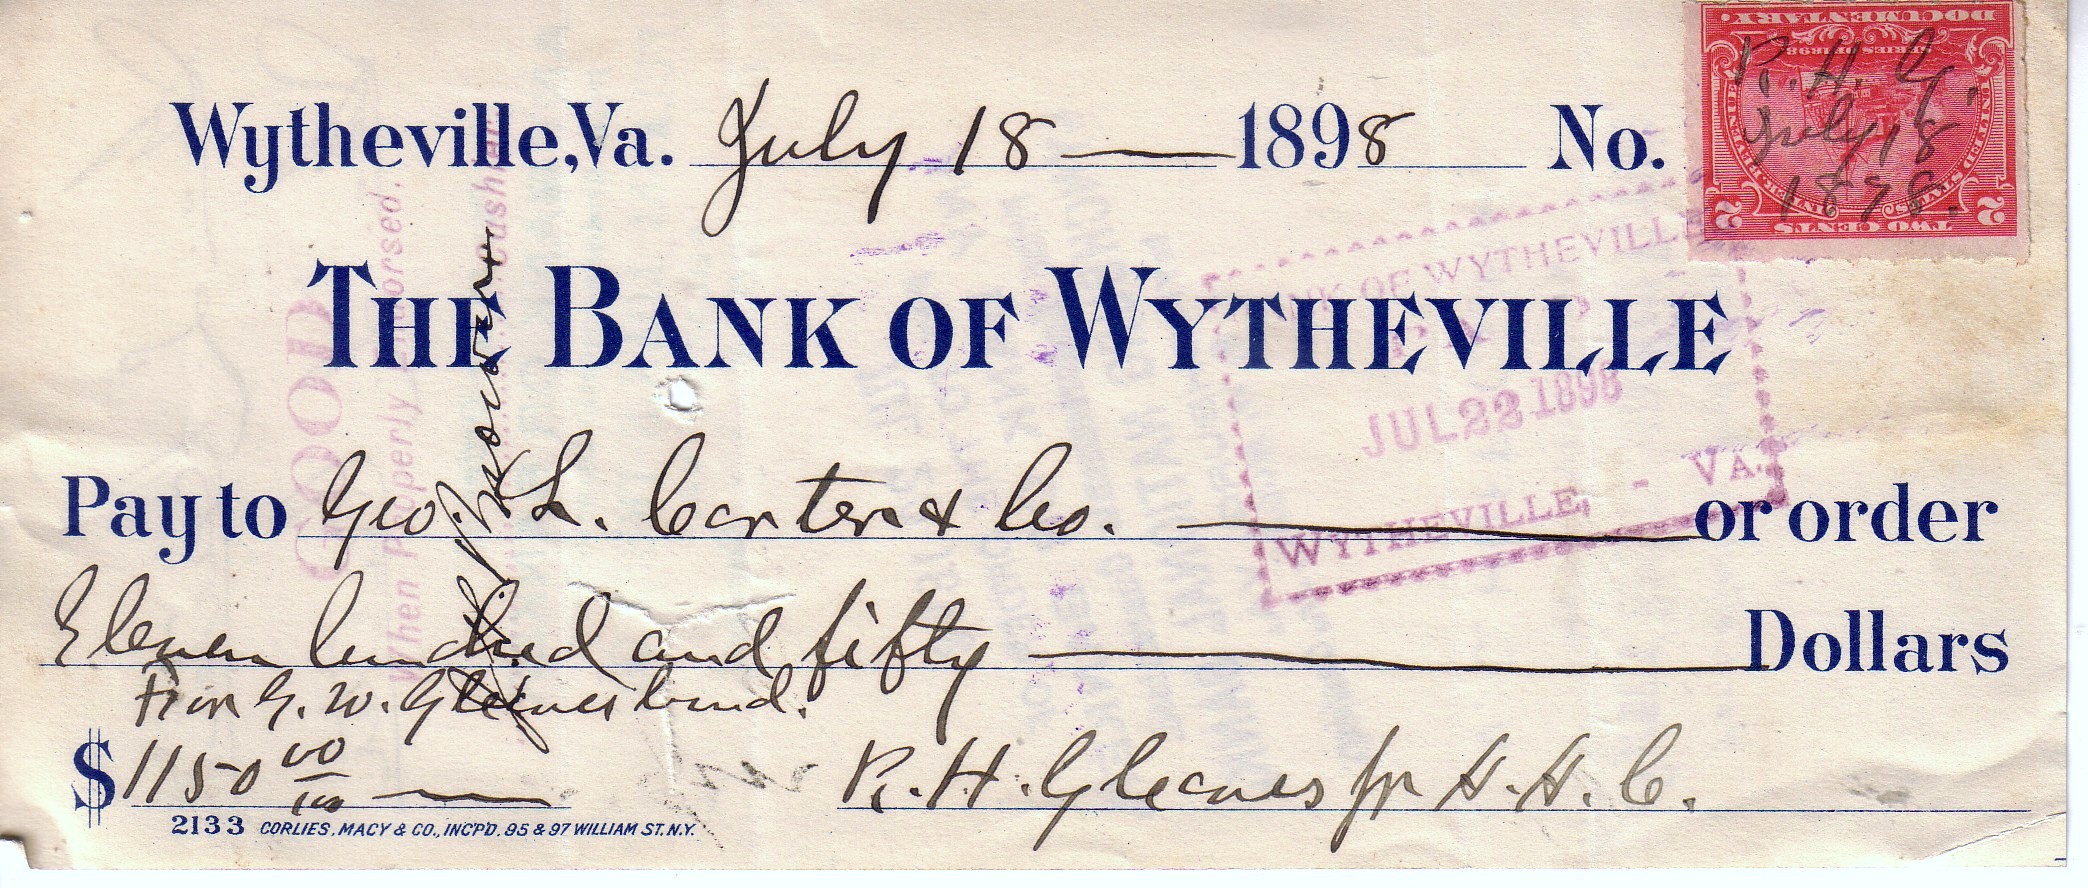 DOCUMENTARY.
SERIES OF 1898
UNITED STATES INTER. REVENUE
2 2
TWO CENTS
R. H. G.
July 18
1898.
Wytheville, Va. July 18 1898 No.
THE BANK OF WYTHEVILLE
BANK OF WYTHEVILLE
PAID
JUL 22 1898
WYTHEVILLE, - VA.
GOOD
When Properly Endorsed.
Cashier
Pay to Geo. L. Carter & Co. or order
Eleven hundred and fifty Dollars
For G. W. Gleaves land.
$1150 00/100
R. H. Gleaves for H. H. C.
2133 CORLIES, MACY & CO., INC'P'D. 95 & 97 WILLIAM ST. N.Y.